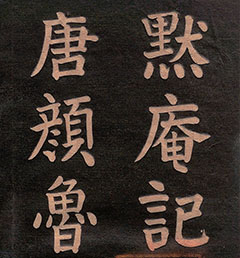 默庵記
唐顔魯